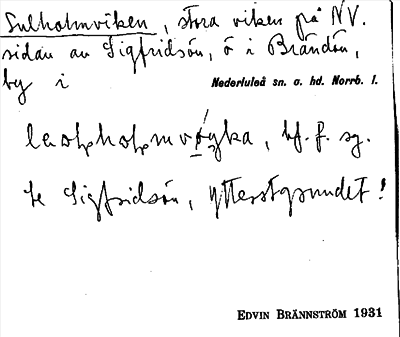 Sulholmviken, stora viken på NV.
sidan av Sigfridsön, ö i Brändön,
by i Nederluleå sn. o. hd. Norrb. l.
bf. f. sg.
te Sigfridsön, ytterstgrundet!
EDVIN BRÄNNSTRÖM 1931